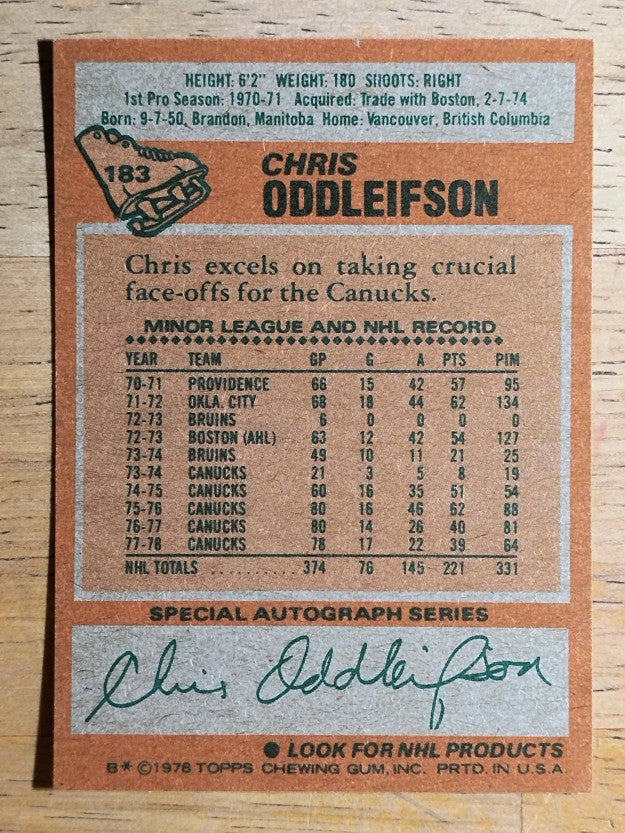 HEIGHT: 6'2" WEIGHT: 180 SHOOTS: RIGHT
1st Pro Season: 1970-71 Acquired: Trade with Boston, 2-7-74
Born: 9-7-50, Brandon, Manitoba Home: Vancouver, British Columbia
183
CHRIS
ODDLEIFSON
Chris excels on taking crucial
face-offs for the Canucks.
MINOR LEAGUE AND NHL RECORD
YEAR TEAM GP G A PTS PIM
70-71 PROVIDENCE 66 15 42 57 95
71-72 OKLA. CITY 68 18 44 62 134
72-73 BRUINS 6 0 0 0 0
72-73 BOSTON (AHL) 63 12 42 54 127
73-74 BRUINS 49 10 11 21 25
73-74 CANUCKS 21 3 5 8 19
74-75 CANUCKS 60 16 35 51 54
75-76 CANUCKS 80 16 46 62 88
76-77 CANUCKS 80 14 26 40 81
77-78 CANUCKS 78 17 22 39 64
NHL TOTALS .......... 374 76 145 221 331
SPECIAL AUTOGRAPH SERIES
Chris Oddleifson
● LOOK FOR NHL PRODUCTS
B* ©1978 TOPPS CHEWING GUM, INC. PRTD. IN U.S.A.